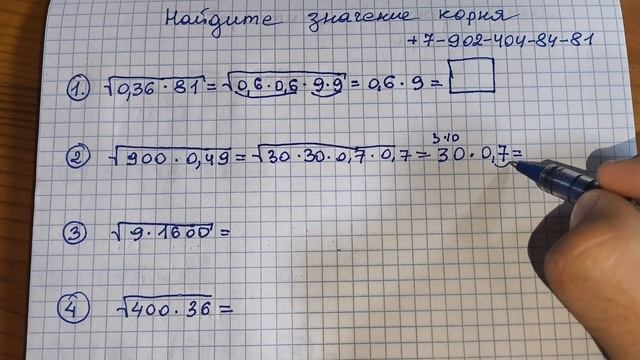 Найдите значение корня
+7-902-404-84-81
1. √0,36·81 = √0,6·0,6·9·9 = 0,6·9 =
3·10
2 √900·0,49 = √30·30·0,7·0,7 = 30·0,7=
3 √9·1600 =
4 √400·36 =